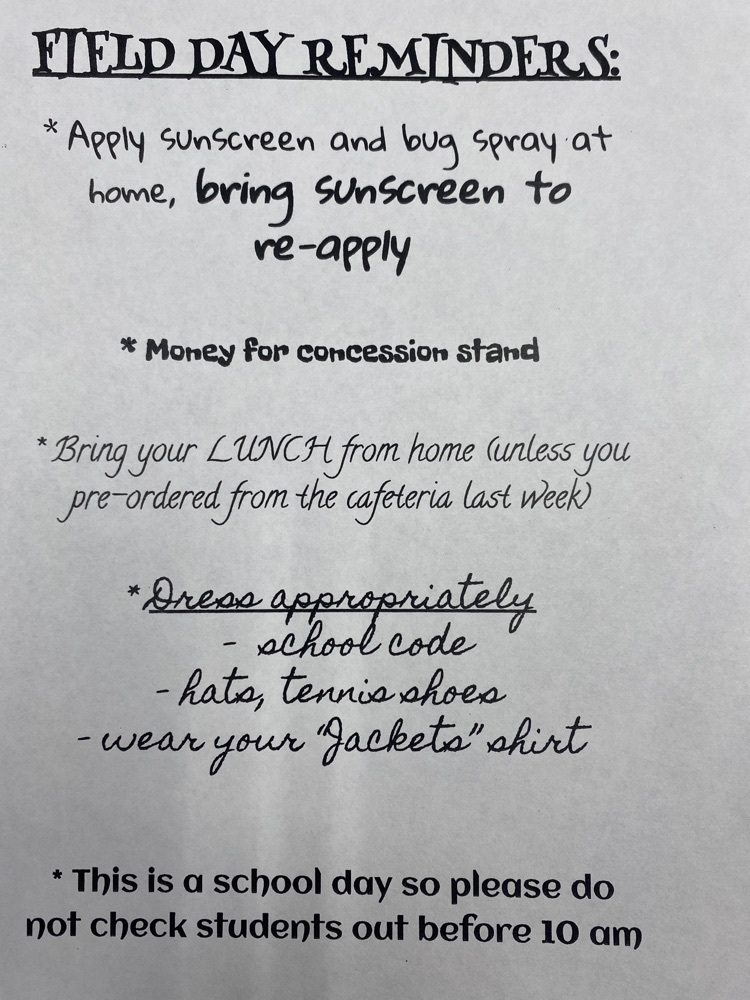 FIELD DAY REMINDERS:
* Apply sunscreen and bug spray at
home, bring sunscreen to
re-apply
* Money for concession stand
* Bring your LUNCH from home (unless you
pre-ordered from the cafeteria last week)
* Dress appropriately
- school code
- hats, tennis shoes
- wear your "Jackets" shirt
* This is a school day so please do
not check students out before 10 am